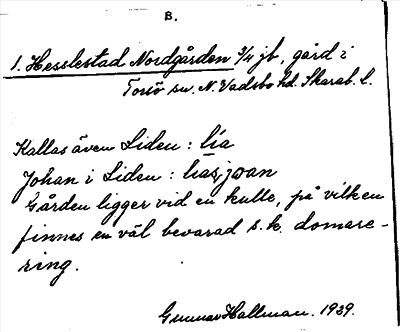 B.
1. Hesslestad Nordgården 3/4 jb, gård i
Torsö sn. N. Vadsbo hd. Skarab. l.
Kallas även Liden : lía
Johan i Liden : liasjoan
Gården ligger vid en kulle, på vilken
finnes en väl bevarad s.k. domare-
ring.
Gunnar Hallman. 1929.